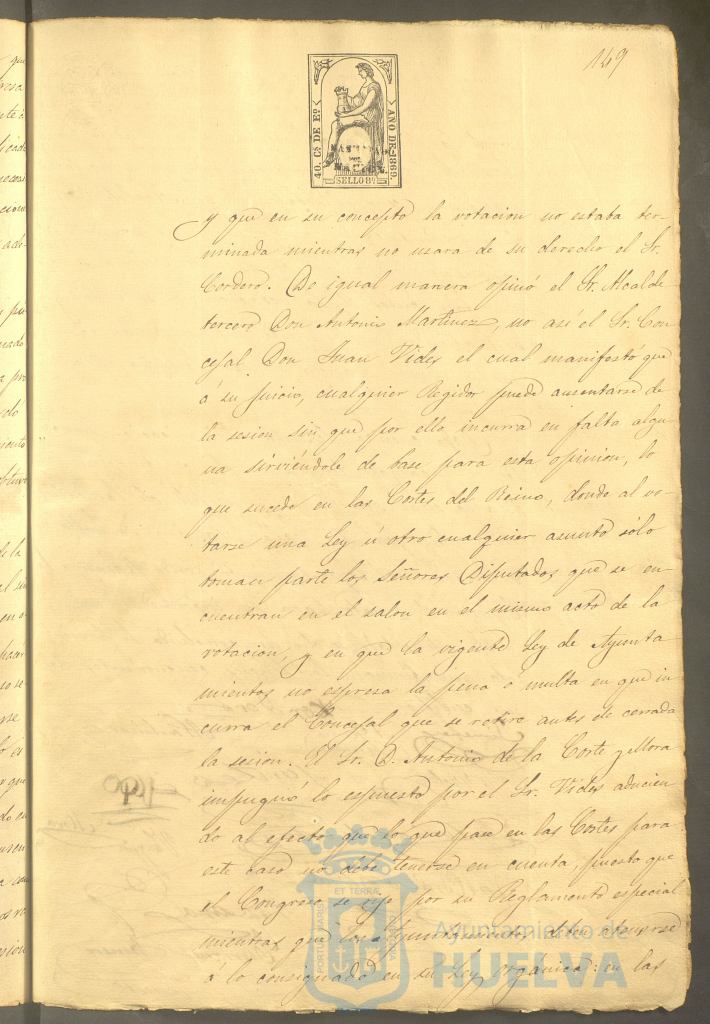 149
40. Cs. DE Eo.
AÑO DE 1869.
SELLO 8º
y que en su concepto la votacion no estaba ter-
minada mientras no usara de su derecho el Sr.
Cordero. De igual manera opinó el Sr. Alcalde
tercero Don Antonio Martinez, no así el Sr. Con
cejal Don Juan Vides el cual manifestó que
á su juicio, cualquier Regidor puede ausentarse de
la sesion sin que por ello incurra en falta algu-
na sirviéndole de base para esta opinion, lo
que sucede en las Cortes del Reino, donde al vo-
tarse una Ley ú otro cualquier asunto sólo
toman parte los Señores Diputados que se en-
cuentran en el salon en el mismo acto de la
votacion, y en que la vigente Ley de Ayunta
mientos no espresa la pena ó multa en que in-
curra el Concejal que se retire antes de cerrada
la sesion. El Sr. D. Antonio de la Corte y Mora
impugnó lo espuesto por el Sr. Vides aducien-
do al efecto que lo que pase en las Cortes para
este caso no debe tenerse en cuenta, puesto que
el Congreso se rije por su Reglamento especial
mientras que los Ayuntamientos deben atenerse
á lo consignado en su Ley orgánica: en las
PORTUS MARIS
ET TERRA
CUSTODIA
Ayuntamiento de
HUELVA